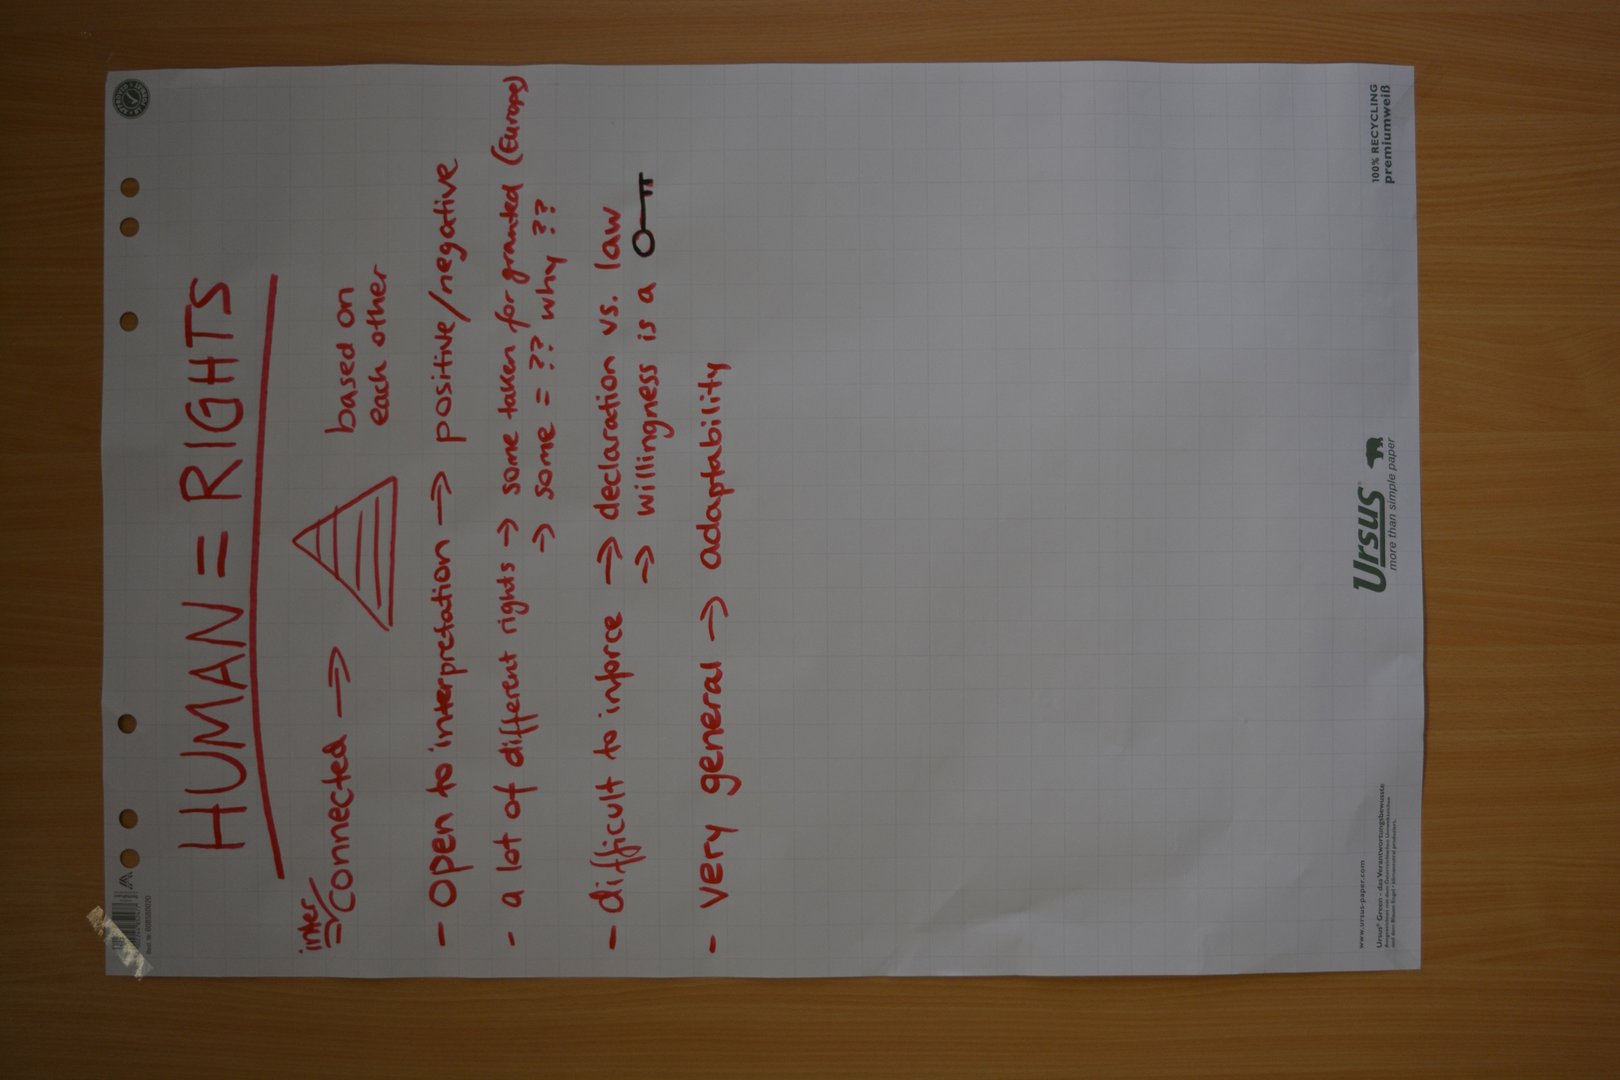 HUMAN = RIGHTS
inter
- Connected → based on
each other
- open to interpretation → positive/negative
- a lot of different rights → some taken for granted (Europe)
→ some = ?? why ??
- difficult to inforce → declaration vs. law
→ willingness is a
- very general → adaptability
Ursus
more than simple paper
100% RECYCLING
premiumweiß
www.ursus-paper.com
Ursus® Green - das Verantwortungsbewusste